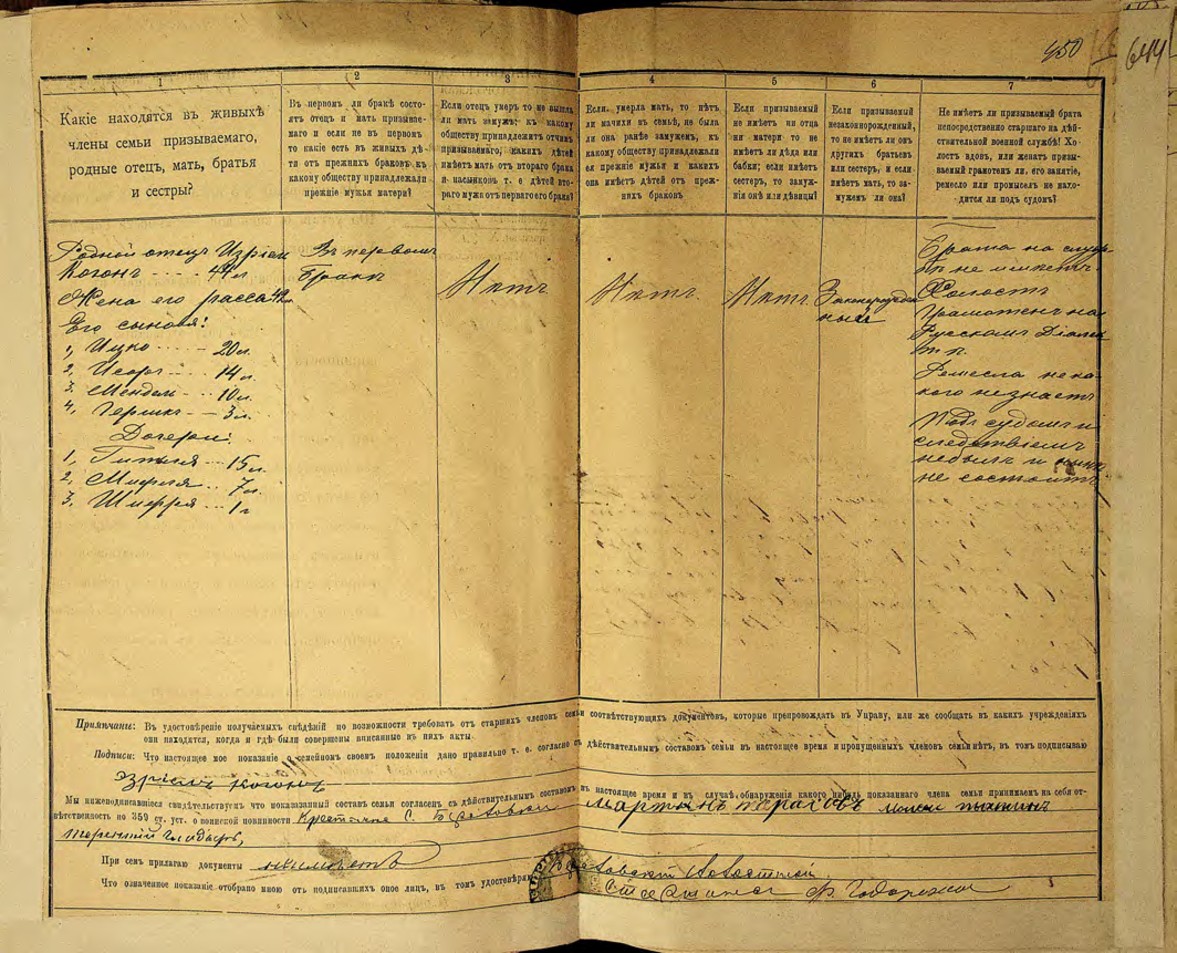 450
644
1
2
3
4
5
6
7
Какіе находятся въ живыхъ
члены семьи призываемаго,
родные отецъ, мать, братья
и сестры?
Въ первомъ ли бракѣ состо-
ятъ отецъ и мать призывае-
маго и если не въ первомъ
то какіе есть въ живыхъ дѣ-
ти отъ прежнихъ браковъ къ
какому обществу принадлежали
прежніе мужья матери?
Если отецъ умеръ то не вышла
ли мать замужъ; къ какому
обществу принадлежитъ отчимъ
призываемаго, какихъ дѣтей
имѣетъ мать отъ втораго брака
и пасынковъ т. е дѣтей вто-
раго мужа отъ перваго его брака?
Если, умерла мать, то нѣтъ
ли мачихи въ семьѣ, не была
ли она ранѣе замужемъ, къ
какому обществу принадлежали
ея прежніе мужья и какихъ
она имѣетъ дѣтей отъ преж-
нихъ браковъ
Если призываемый
не имѣетъ ни отца
ни матери то не
имѣетъ ли дѣда или
бабки; если имѣетъ
сестеръ, то замуж-
нія онѣ или дѣвицы?
Если призываемый
незаконнорожденный,
то не имѣетъ ли онъ
другихъ братьевъ
или сестеръ, и если
имѣетъ мать, то за-
мужемъ ли она?
Не имѣетъ ли призываемый брата
непосредственно старшаго на дѣй-
ствительной военной службѣ? Хо-
лостъ вдовъ, или женатъ призы-
ваемый грамотенъ ли, его занятіе,
ремесло или промыселъ не нахо-
дится ли подъ судомъ?
Родной отецъ
Когонъ 44 л
Жена его
Его сыновя:
1, Ицко 20 л.
2, 14 л.
3. Мендель 10 л.
4, Гершко 3 л.
Дочери:
1, 15 л.
2, 7 л.
3. 1 г
Въ первомъ
бракѣ
Нѣтъ
Нѣтъ.
Нѣтъ.
Законорожден
ный
Брата на служ
бѣ не имѣетъ.
Холостъ
Грамотенъ на
Русскомъ Діалек
тѣ.
Ремесла нека
кого незнаетъ
Подъ судомъ и
следствіемъ
небылъ и
не состоитъ
Примѣчаніе: Въ удостовѣреніе получаемыхъ свѣдѣній по возможности требовать отъ старшихъ членовъ семьи соотвѣтствующихъ документовъ, которые препровождать въ Управу, или же сообщать въ какихъ учрежденіяхъ
они находятся, когда и гдѣ были совершены вписанные въ нихъ акты.
Подписи: Что настоящее мое показаніе о семейномъ своемъ положеніи дано правильно т. е. согласно съ дѣйствительнымъ составомъ семьи въ настоящее время и пропущенныхъ членовъ семьи нѣтъ, въ томъ подписываю
Эзріель Когонъ
Мы нижеподписавшіеся свидѣтельствуемъ что показанный составъ семьи согласенъ съ дѣйствительнымъ составомъ въ настоящее время и въ случаѣ обнаруженія какого нибудь показаннаго члена семьи принимаемъ на себя от-
вѣтственность по 359 ст. уст. о воинской повинности. Крестяне С.
Мартынъ
Терентій
При семъ прилагаю документы неимѣетъ
Что означенное показаніе отобрано мною отъ подписавшихъ оное лицъ, въ томъ удостовѣряю